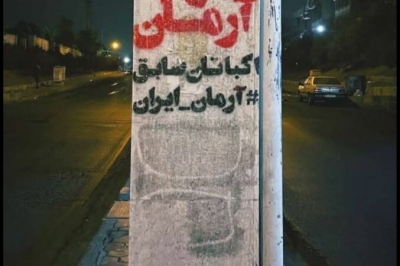 آرمان
اکباتان سابق
#آرمان_ایران